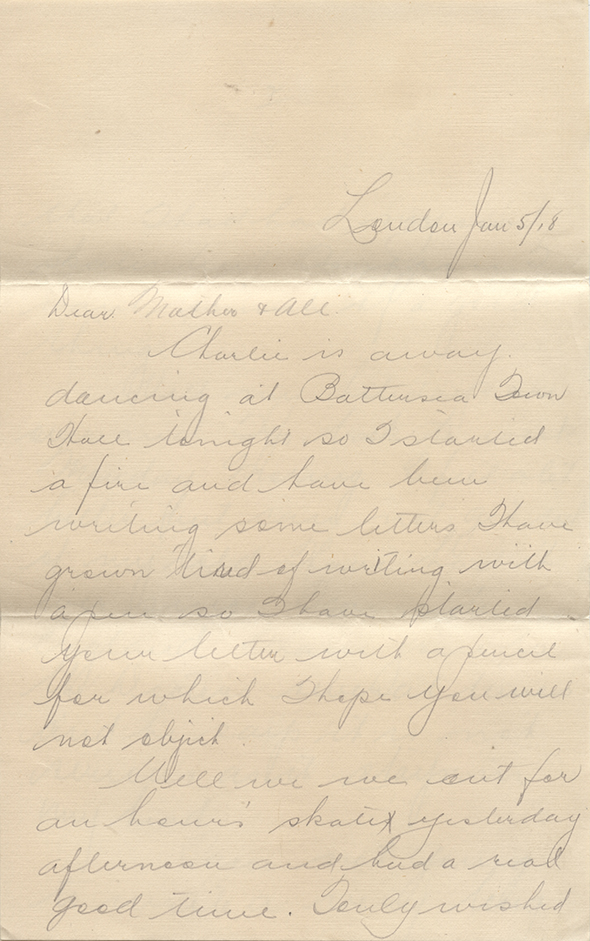 London Jan 5/18
Dear Mother & All.
Charlie is away
dancing at Battersea Town
Hall tonight so I started
a fire and have been
writing some letters I have
grown tired of writing with
a pen so I have started
your letter with a pencil
for which I hope you will
not object.
Well we we out for
an hour's skate yesterday
afternoon and had a real
good time. I only wished